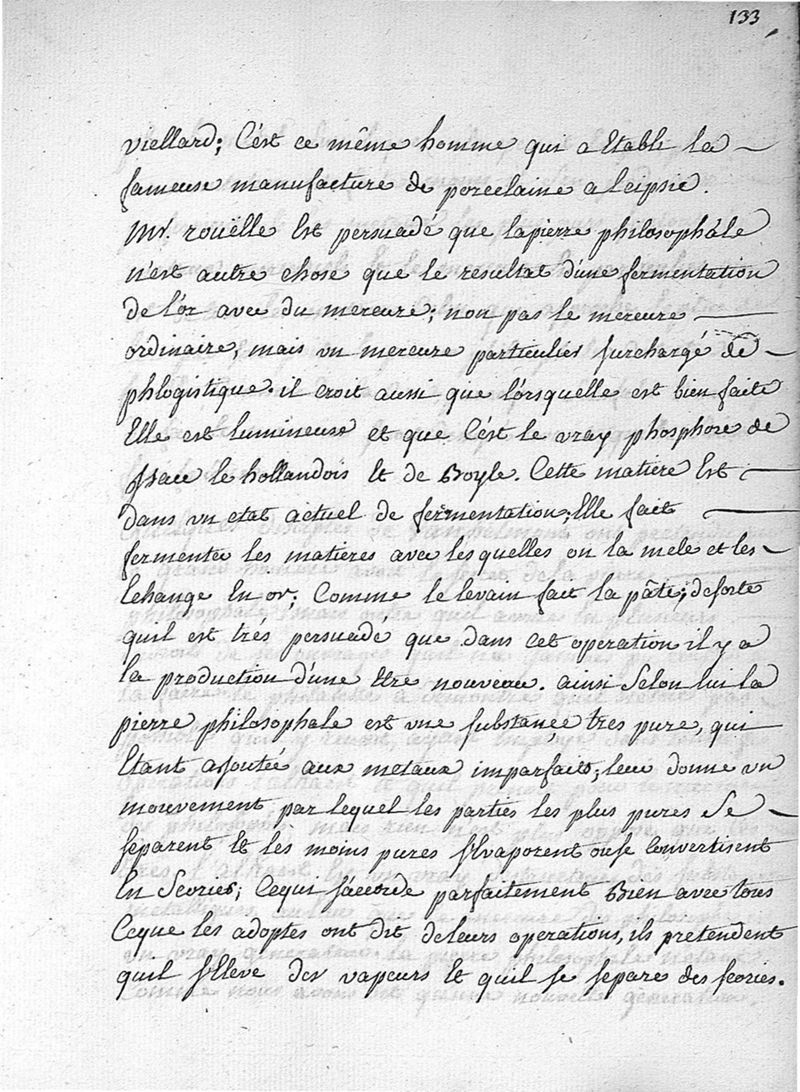 133
viellard; C'est ce même homme qui a Etabli la
fameuse manufacture de porcelaine a leipsic.
Mr. rouëlle Est persuadé que lapierre philosophâle
n'est autre chose que le resultat d'une fermentation
de l'or avec du mercure; non pas le mercure
ordinaire, mais un mercure particulier surchargé de
phlogistique. il croit aussi que lorsquelle est bien faite
Elle est lumineuse et que C'est le vray phosphore de
Isaac le hollandois Et de Boyle. Cette matière Est
dans un etat actuel de fermentation; Elle fait
fermenter les matières avec lesquelles on la mele et les
Echange En or; Comme le levain fait la pâte; desorte
quil est trés persuadé que dans cet operation il y a
la production d'une Etre nouveau. ainsi Selon lui la
pierre philosophale est une substançe tres pure, qui
Etant ajoutée aux metaux imparfaits, leur donne un
mouvement par lequel les parties les plus pures Se
separent Et les moins pures s'Evaporent ou se Convertisent
En Scories; Cequi s'accorde parfaitement Bien avec tous
Ceque les adoptes ont dit de leurs operations, ils pretendent
quil s'Eleve des vapeurs Et quil se separe des scories.